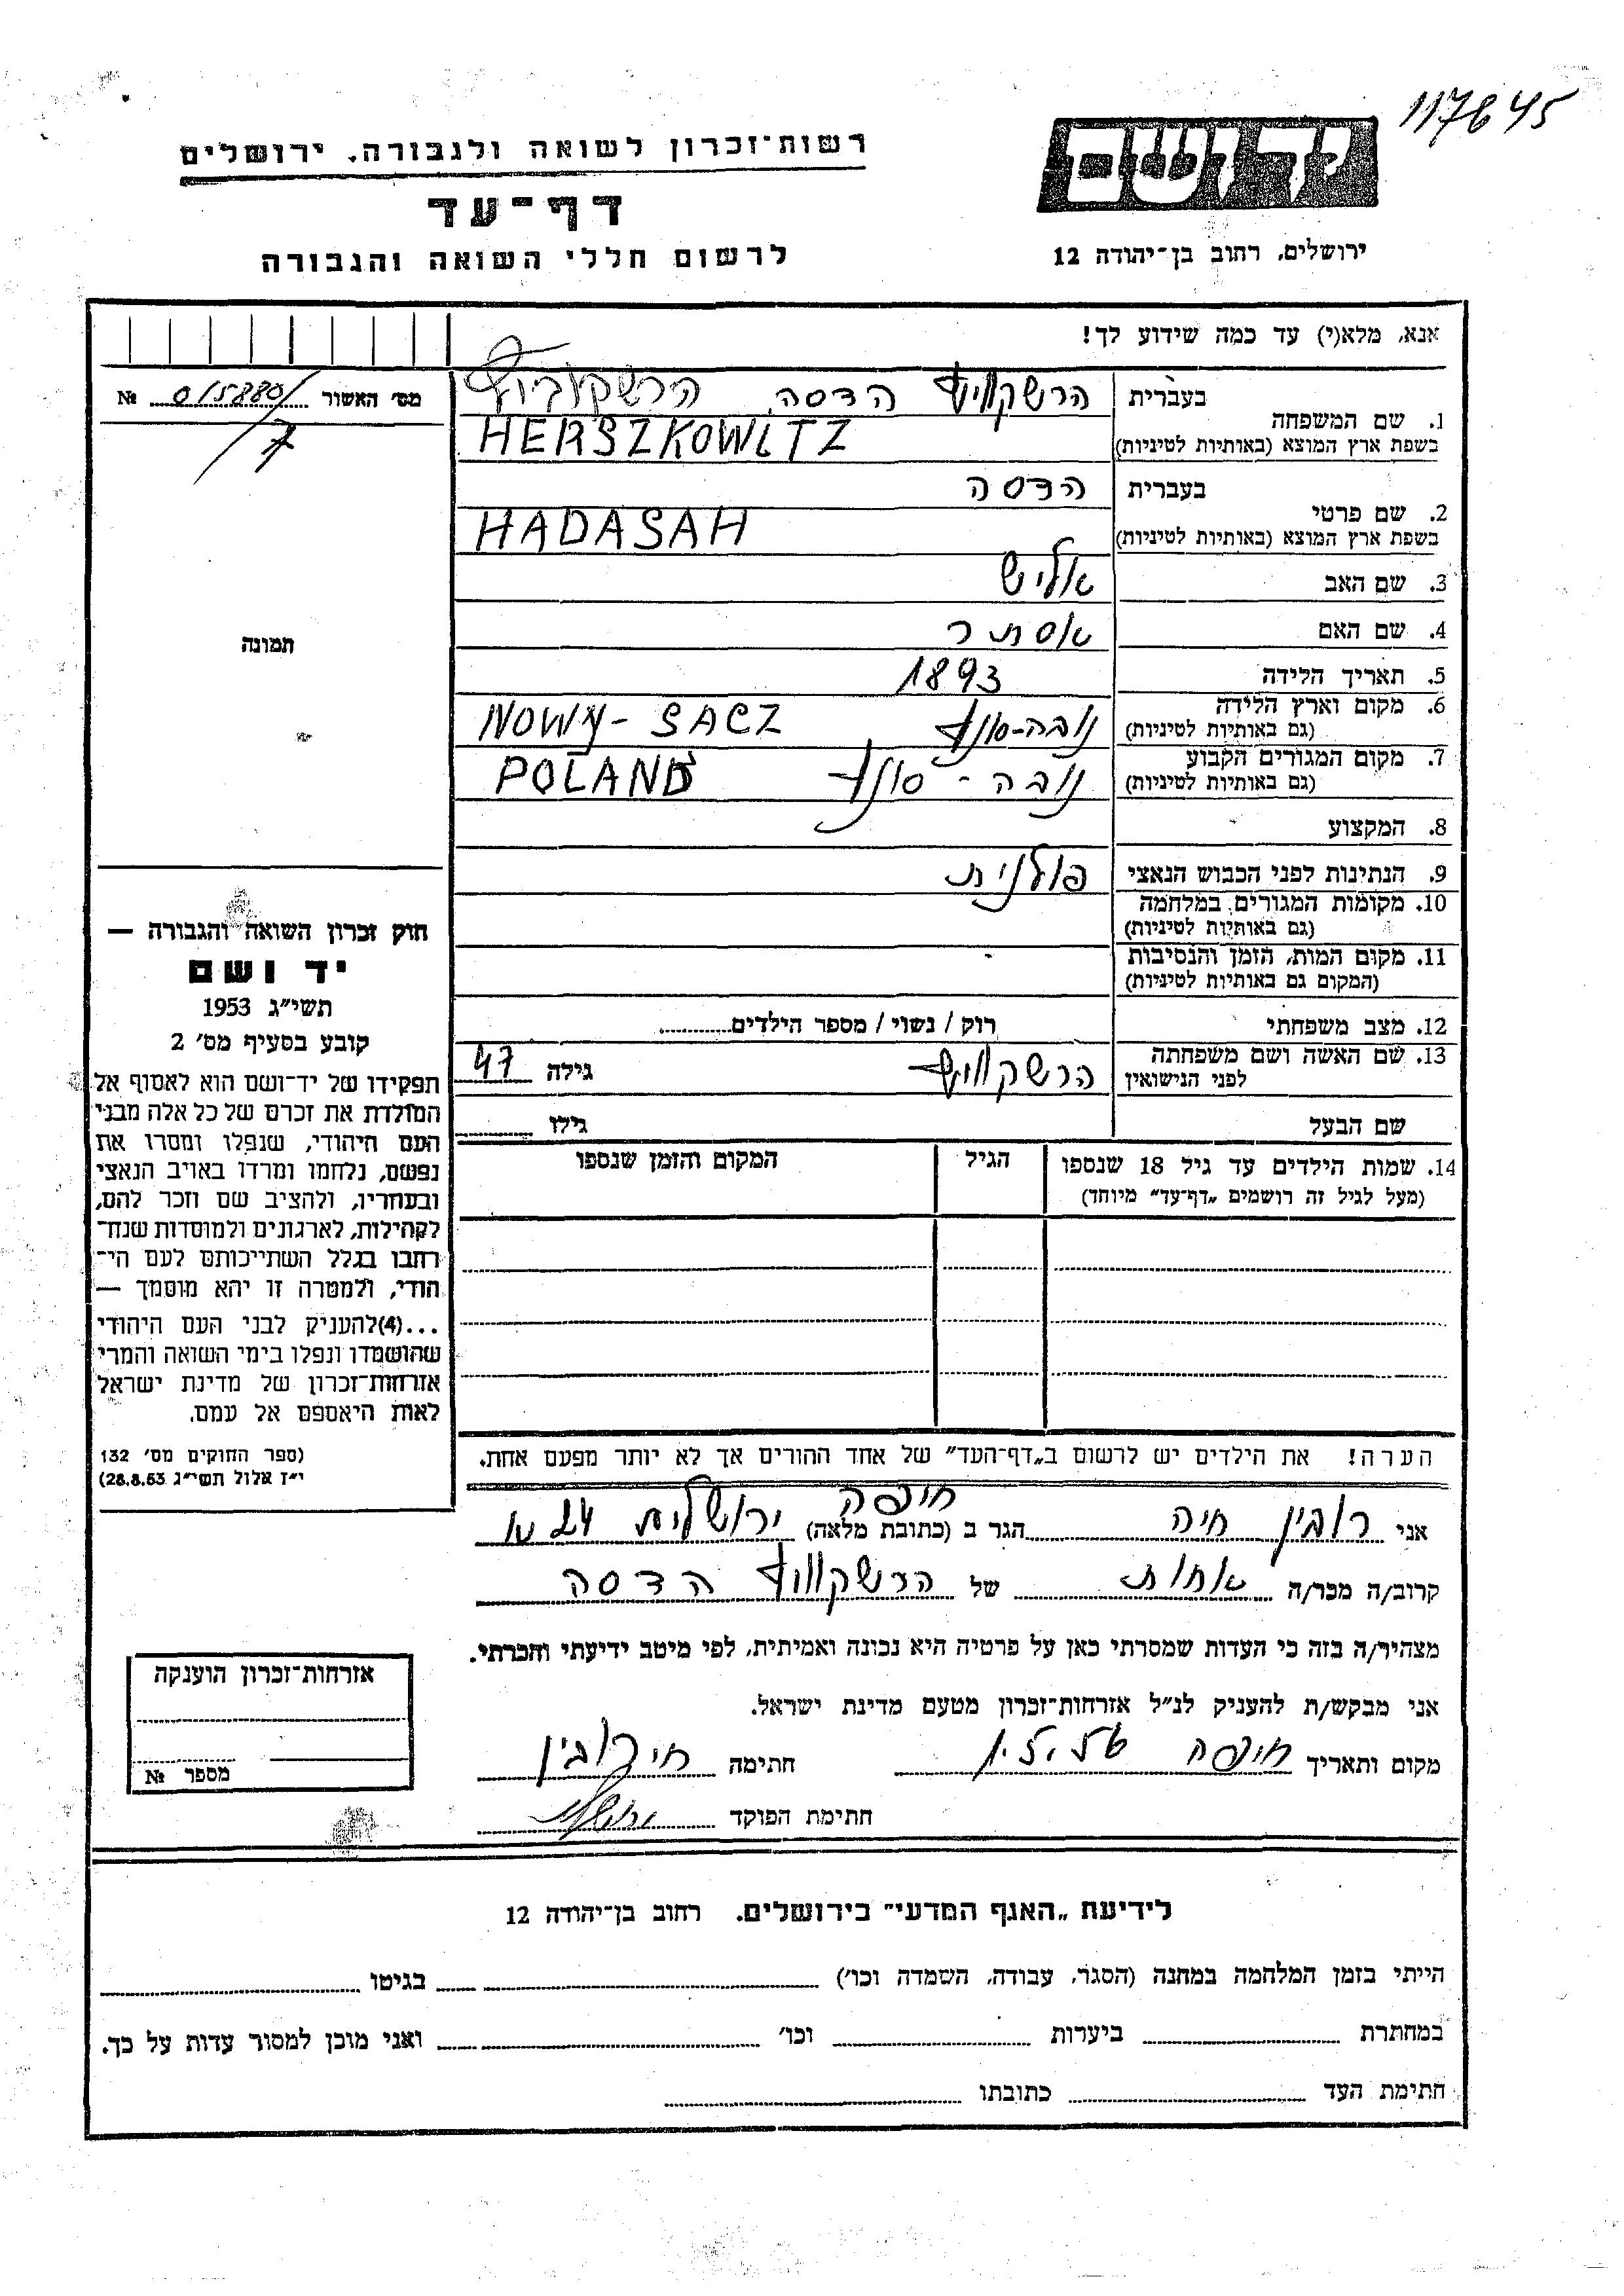 117645
יד ושם
רשות־זכרון לשואה ולגבורה. ירושלים
דף־עד
לרשום חללי השואה והגבורה
ירושלים, רחוב בן־יהודה 12
אנא, מלא(י) עד כמה שידוע לך!
מס׳ האשור 0/5880 №
7
1. שם המשפחה
בעברית הרשקוויץ הדסה הרשקוביץ
בשפת ארץ המוצא (באותיות לטיניות) HERSZKOWITZ
2. שם פרטי
בעברית הדסה
בשפת ארץ המוצא (באותיות לטיניות) HADASAH
3. שם האב
4. שם האם אסתר
5. תאריך הלידה 1893
6. מקום וארץ הלידה (גם באותיות לטיניות) נובה-סונץ NOWY-SACZ
7. מקום המגורים הקבוע (גם באותיות לטיניות) נובה-סונץ POLAND
8. המקצוע
9. הנתינות לפני הכבוש הנאצי פולנית
10. מקומות המגורים במלחמה (גם באותיות לטיניות)
11. מקום המות, הזמן והנסיבות (המקום גם באותיות לטיניות)
12. מצב משפחתי רוק / נשוי / מספר הילדים
13. שם האשה ושם משפחתה לפני הנישואין הרשקוויץ גילה 47
שם הבעל גילו
14. שמות הילדים עד גיל 18 שנספו הגיל המקום והזמן שנספו
(מעל לגיל זה רושמים „דף־עד״ מיוחד)
הערה! את הילדים יש לרשום ב„דף־העד״ של אחד ההורים אך לא יותר מפעם אחת.
תמונה
חוק זכרון השואה והגבורה —
יד ושם
תשי״ג 1953
קובע בסעיף מס׳ 2
תפקידו של יד־ושם הוא לאסוף אל
המולדת את זכרם של כל אלה מבני
העם היהודי, שנפלו ומסרו את
נפשם, נלחמו ומרדו באויב הנאצי
ובעוזריו, ולהציב שם וזכר להם,
לקהילות, לארגונים ולמוסדות שנח־
רבו בגלל השתייכותם לעם הי־
הודי, ולמטרה זו יהא מוסמך —
...(4)להעניק לבני העם היהודי
שהושמדו ונפלו בימי השואה והמרי
אזרחות־זכרון של מדינת ישראל
לאות היאספם אל עמם.
(ספר החוקים מס׳ 132
י״ז אלול תשי״ג 28.8.53)
אני רובין חיה הגר ב (כתובת מלאה) חיפה ירושלים 24
קרוב/ה מכר/ה אחות של הרשקוויץ הדסה
מצהיר/ה בזה כי העדות שמסרתי כאן על פרטיה היא נכונה ואמיתית, לפי מיטב ידיעתי והכרתי.
אני מבקש/ת להעניק לנ״ל אזרחות־זכרון מטעם מדינת ישראל.
מקום ותאריך חיפה חתימה חי רובין
חתימת הפוקד
אזרחות־זכרון הוענקה
מספר №
לידיעת „האגף המדעי״ בירושלים. רחוב בן־יהודה 12
הייתי בזמן המלחמה במחנה (הסגר, עבודה, השמדה וכו׳) בגיטו
במחתרת ביערות וכו׳ ואני מוכן למסור עדות על כך.
חתימת העד כתובתו